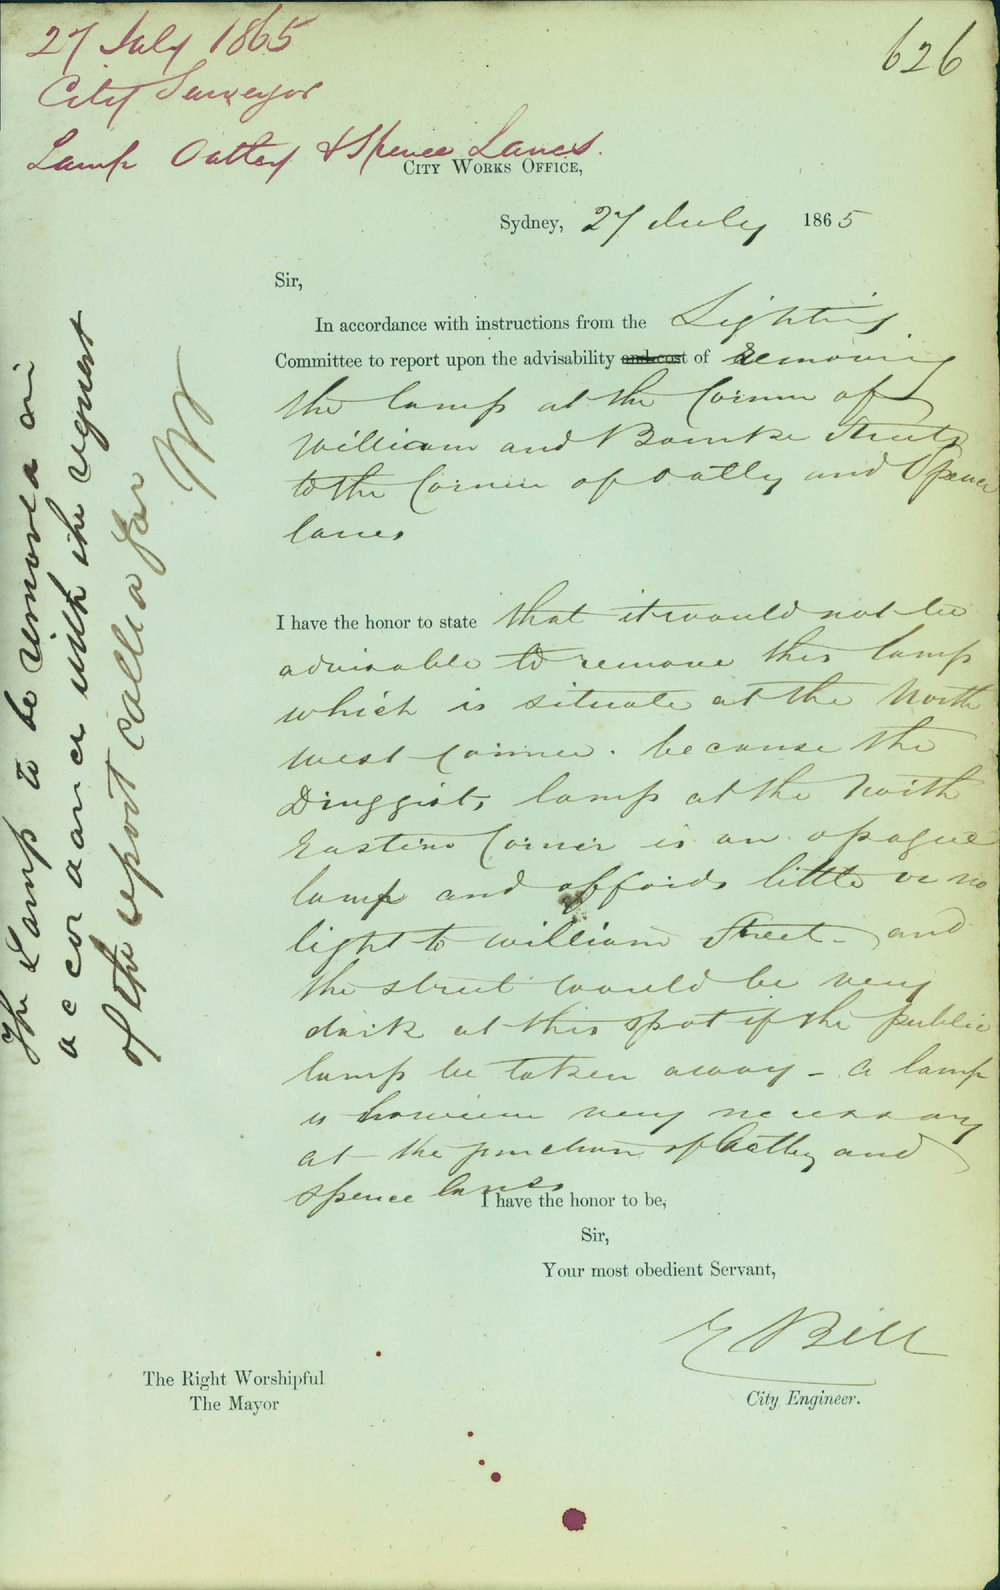 27 July 1865
City Surveyor
Lamp Oatley & Spence Lanes.
626
CITY WORKS OFFICE,
Sydney, 27 July 1865
Sir,
In accordance with instructions from the Lighting
Committee to report upon the advisability and cost of removing
the lamp at the Corner of
William and Bourke Streets
to the Corner of Oatley and Spence
lanes
I have the honor to state that it would not be
advisable to remove this lamp
which is situate at the North
west corner. because the
Druggists lamp at the North
Eastern Corner is an opaque
lamp and affords little or no
light to William Street - and
the street would be very
dark at this spot if the public
lamp be taken away - a lamp
is however very necessary
at the junction of Oatley and
Spence lanes
I have the honor to be,
Sir,
Your most obedient Servant,
E Bell
City Engineer.
The Right Worshipful
The Mayor
The Lamp to be removed in
accordance with the request
of the report called for